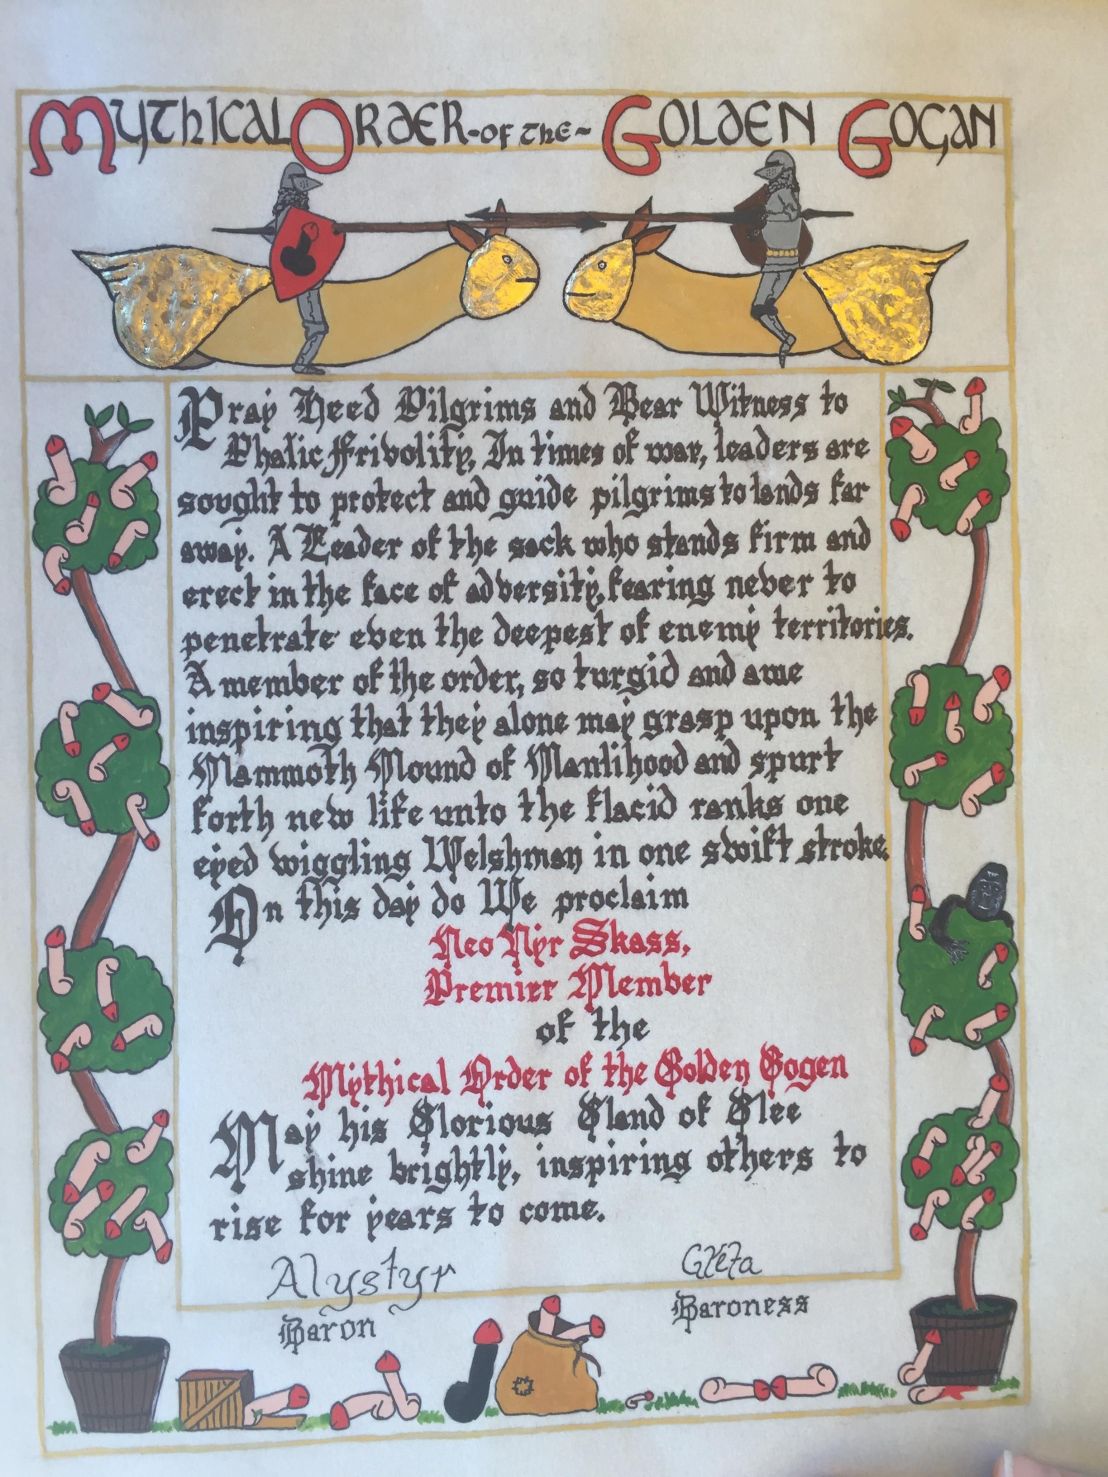 Mythical Order -of the- Golden Gogan
Pray Heed Pilgrims and Bear Witness to
Phalic ffrivolity, In times of war, leaders are
sought to protect and guide pilgrims to lands far
away. A Leader of the sack who stands firm and
erect in the face of adversity, fearing never to
penetrate even the deepest of enemy territories.
A member of the order, so turgid and awe
inspiring that they alone may grasp upon the
Mammoth Mound of Manlihood and spurt
forth new life unto the flacid ranks one
eyed wiggling Welshman in one swift stroke.
On this day do We proclaim
Neo Nyr Skass,
Premier Member
of the
Mythical Order of the Golden Gogen
May his Glorious Gland of Glee
shine brightly, inspiring others to
rise for years to come.
Alystyr
Baron
Baroness